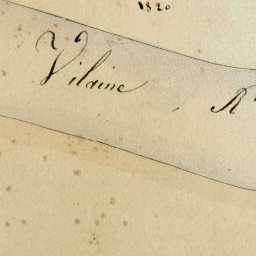 1820
Vilaine R